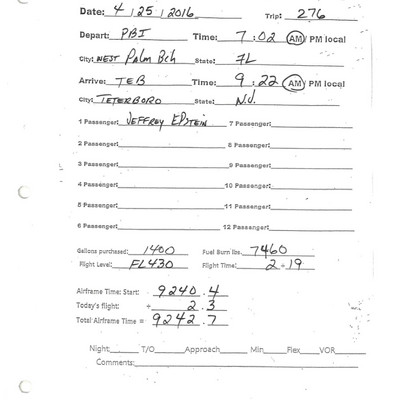 Date: 4 / 25 / 2016 Trip: 276
Depart: PBI Time: 7 : 02 AM / PM local
City: West Palm Bch State: FL
Arrive: TEB Time: 9 : 22 AM / PM local
City: TETERBORO State: N.J.
1 Passenger: JEFFREY EPSTEIN 7 Passenger:
2 Passenger: 8 Passenger:
3 Passenger: 9 Passenger:
4 Passenger: 10 Passenger:
5 Passenger: 11 Passenger:
6 Passenger: 12 Passenger:
Gallons purchased: 1400 Fuel Burn lbs. 7460
Flight Level: FL430 Flight Time: 2 : 19
Airframe Time: Start: 9240 . 4
Today's flight: + 2 . 3
Total Airframe Time = 9242 . 7
Night: T/O Approach Min Flex VOR
Comments: